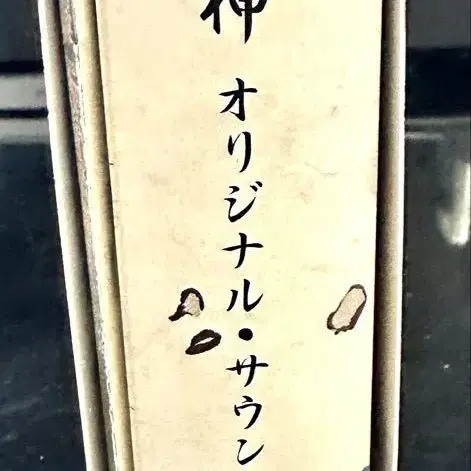 神 オリジナル・サウン